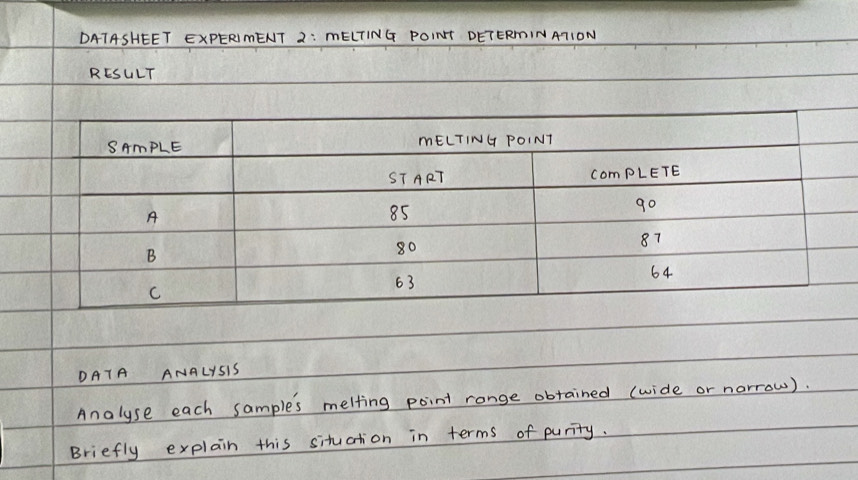 DATASHEET EXPERIMENT 2: MELTING POINT DETERMINATION
RESULT
SAMPLE MELTING POINT
START COMPLETE
A 85 90
B 80 87
C 63 64
DATA ANALYSIS
Analyse each sample's melting point range obtained (wide or narrow).
Briefly explain this situation in terms of purity.